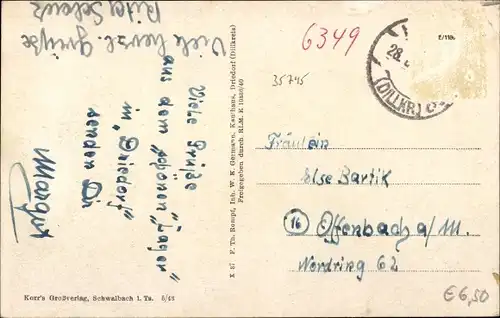 Viele herzl. Grüße
Viele Grüße
aus dem schönen "Lager"
in "Driedorf"
senden Dir
Margret
6349
35745
28.
(DILLKR.)
Fräulein
Else Bartik
16 Offenbach a/m
Nordring 62
€6,50
X 87 F. Th. Rompf, Inh. W. K. Germann, Kaufhaus, Driedorf (Dillkreis)
Freigegeben durch RLM.
Korr's Großverlag, Schwalbach i. Ts. 5/43